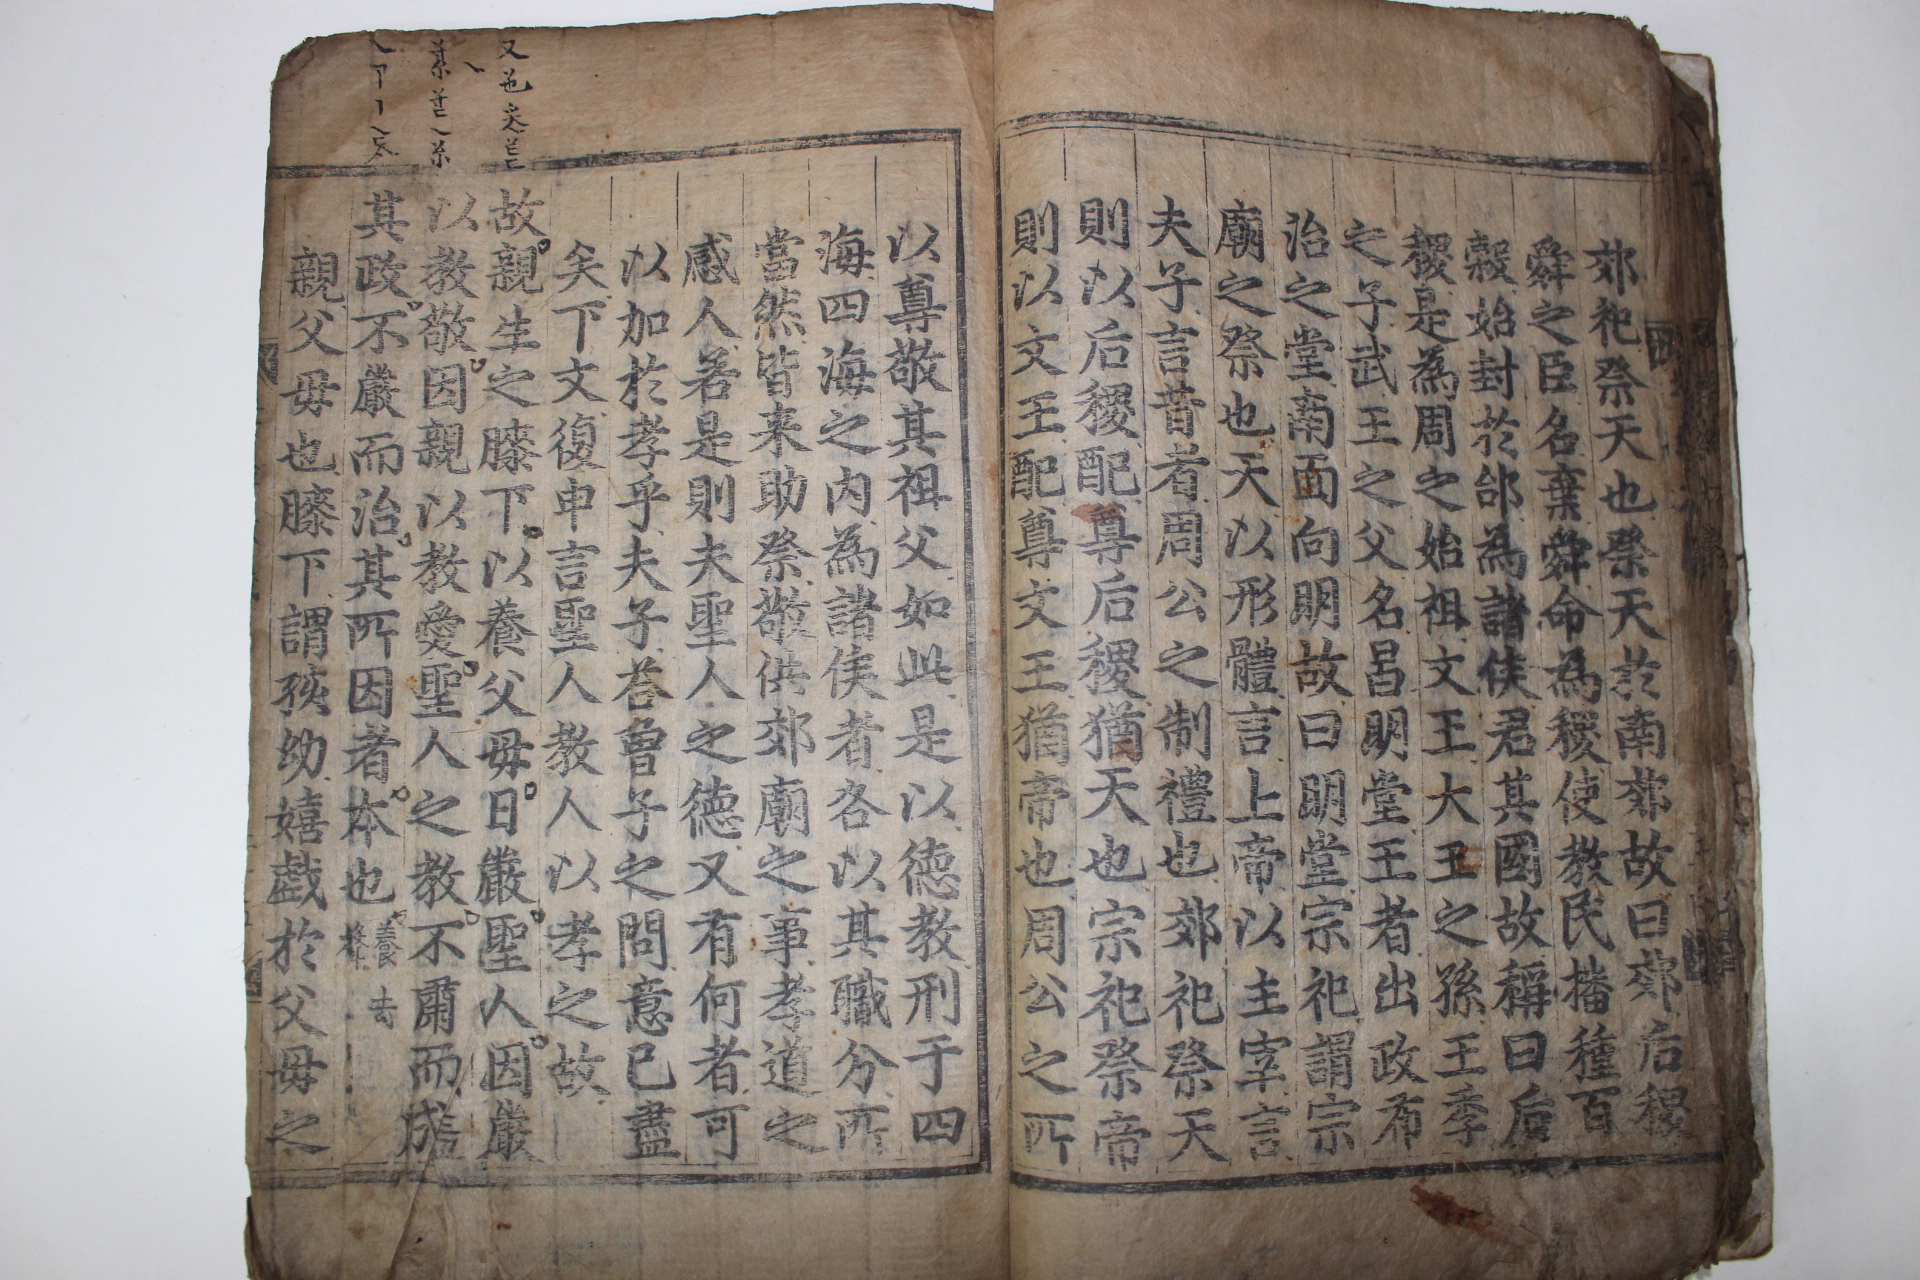 郊祀祭天也祭天於南郊故曰郊后稷
舜之臣名棄舜命為稷使教民播種百
穀始封於邰為諸侯君其國故稱曰后
稷是為周之始祖文王大王之孫王季
之子武王之父名昌明堂王者出政布
治之堂南面向明故曰明堂宗祀謂宗
廟之祭也天以形體言上帝以主宰言
夫子言昔者周公之制禮也郊祀祭天
則以后稷配尊后稷猶天也宗祀祭帝
則以文王配尊文王猶帝也周公之所
以尊敬其祖父如此是以德教刑于四
海四海之內為諸侯者各以其職分所
當然皆来助祭敬供郊廟之事孝道之
感人若是則夫聖人之德又有何者可
以加於孝乎夫子荅曾子之問意已盡
矣下文復申言聖人教人以孝之故
故親生之膝下以養父毋日嚴聖人因嚴
以教敬因親以教愛聖人之教不肅而成
其政不嚴而治其所因者本也 養去
親父毋也膝下謂孩幼嬉戲於父毋之